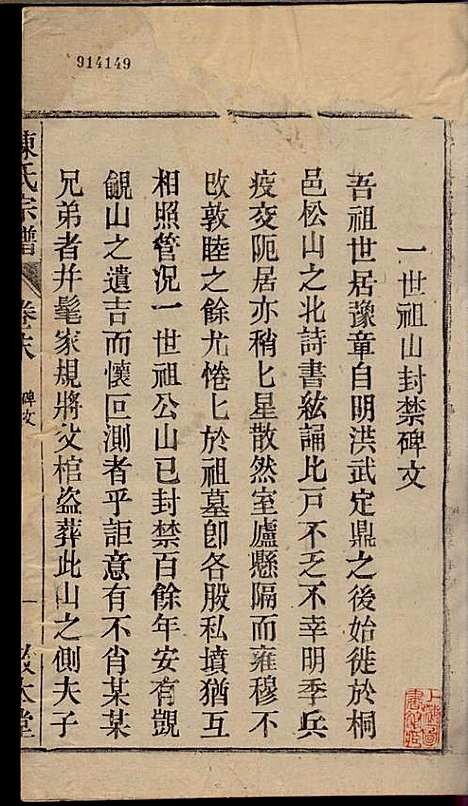 914149
一世祖山封禁碑文
吾祖世居豫章自明洪武定鼎之後始徙於桐
邑松山之北詩書絃誦比戶不乏不幸明季兵
疫交阨居亦稍匕星散然室廬懸隔而雍穆不
改敦睦之餘尤惓匕於祖墓卽各股私墳猶互
相照管况一世祖公山已封禁百餘年安有覬
覦山之遺吉而懷叵測者乎詎意有不肖某某
兄弟者弁髦家規將父棺盜葬此山之側夫子
陳氏宗譜
卷六
碑文
一
本堂